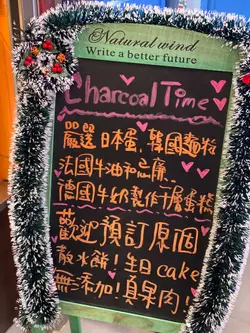 Natural wind
Write a better future
Charcoal Time
嚴選 日本蛋, 韓國麵粉
法國牛油和忌廉
德國牛奶製作千層蛋糕
歡迎預訂原個
散水餅! 生日 cake
無添加! 真果肉!